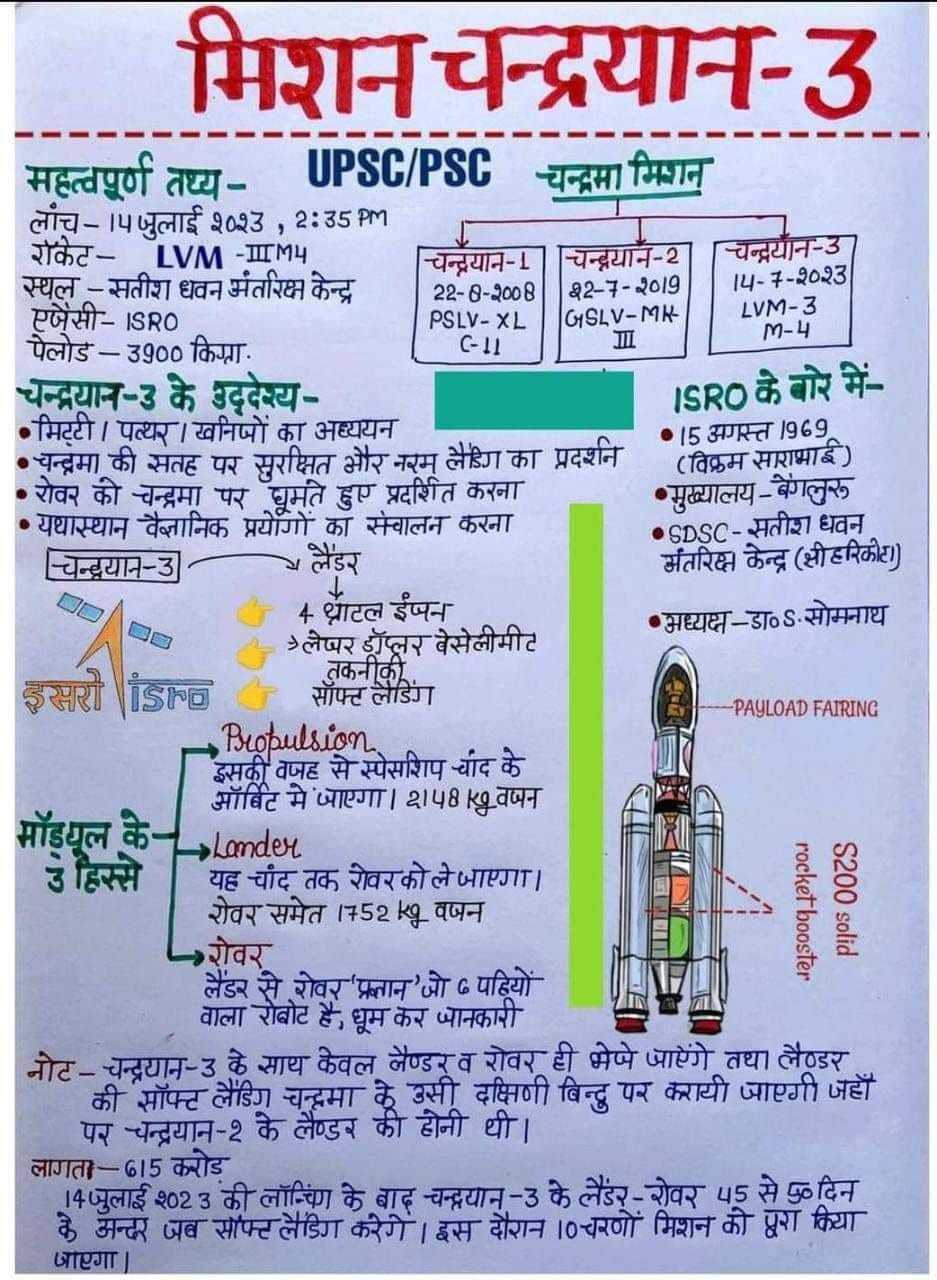 मिशन चन्द्रयान-3
महत्वपूर्ण तथ्य -
UPSC/PSC
लांच - 14 जुलाई २०२3 , 2:35 PM
रॉकेट - LVM -III M4
स्थल - सतीश धवन अंतरिक्ष केन्द्र
एजेंसी - ISRO
पेलोड - 3900 किग्रा.
चन्द्रमा मिशन
चन्द्रयान-1
22-8-2008
PSLV-XL
C-11
चन्द्रयान-2
22-7-2019
GSLV-MK-
III
चन्द्रयान-3
14-7-2023
LVM-3
M-4
चन्द्रयान-3 के उद्देश्य -
• मिट्टी। पत्थर। खनिजों का अध्ययन
• चन्द्रमा की सतह पर सुरक्षित और नरम लैंडिग का प्रदर्शन
• रोवर को चन्द्रमा पर घूमते हुए प्रदर्शित करना
• यथास्थान वैज्ञानिक प्रयोगों का संचालन करना
ISRO के बारे में -
• 15 अगस्त 1969
(विक्रम साराभाई)
• मुख्यालय - बेंगलुरू
• SDSC - सतीश धवन
अंतरिक्ष केन्द्र (श्रीहरिकोटा)
• अध्यक्ष - डा० S. सोमनाथ
चन्द्रयान-3
लैंडर
4 थ्राटल इंजन
लेजर डॉप्लर वेसेलीमीट
तकनीकी
सॉफ्ट लैंडिंग
इसरो isro
मॉड्यूल के
3 हिस्से
Propulsion
इसकी वजह से स्पेसशिप चांद के
ऑर्बिट में जाएगा। 2148 kg वजन
Lander
यह चांद तक रोवर को ले जाएगा।
रोवर समेत 1752 kg वजन
रोवर
लैंडर से रोवर 'प्रज्ञान' जो 6 पहियों
वाला रोबोट है, घूम कर जानकारी
PAYLOAD FAIRING
S200 solid
rocket booster
नोट - चन्द्रयान-3 के साथ केवल लैण्डर व रोवर ही भेजे जाऐंगे तथा लैण्डर
की सॉफ्ट लैंडिग चन्द्रमा के उसी दक्षिणी बिन्दु पर करायी जाएगी जहाँ
पर चन्द्रयान-२ के लैण्डर की होनी थी।
लागत - 615 करोड़
14 जुलाई २०२3 की लॉन्चिंग के बाद चन्द्रयान-3 के लैंडर-रोवर 45 से 50 दिन
के अन्दर जब सॉफ्ट लैंडिग करेगे। इस दौरान 10 चरणों मिशन को पूरा किया
जाएगा।